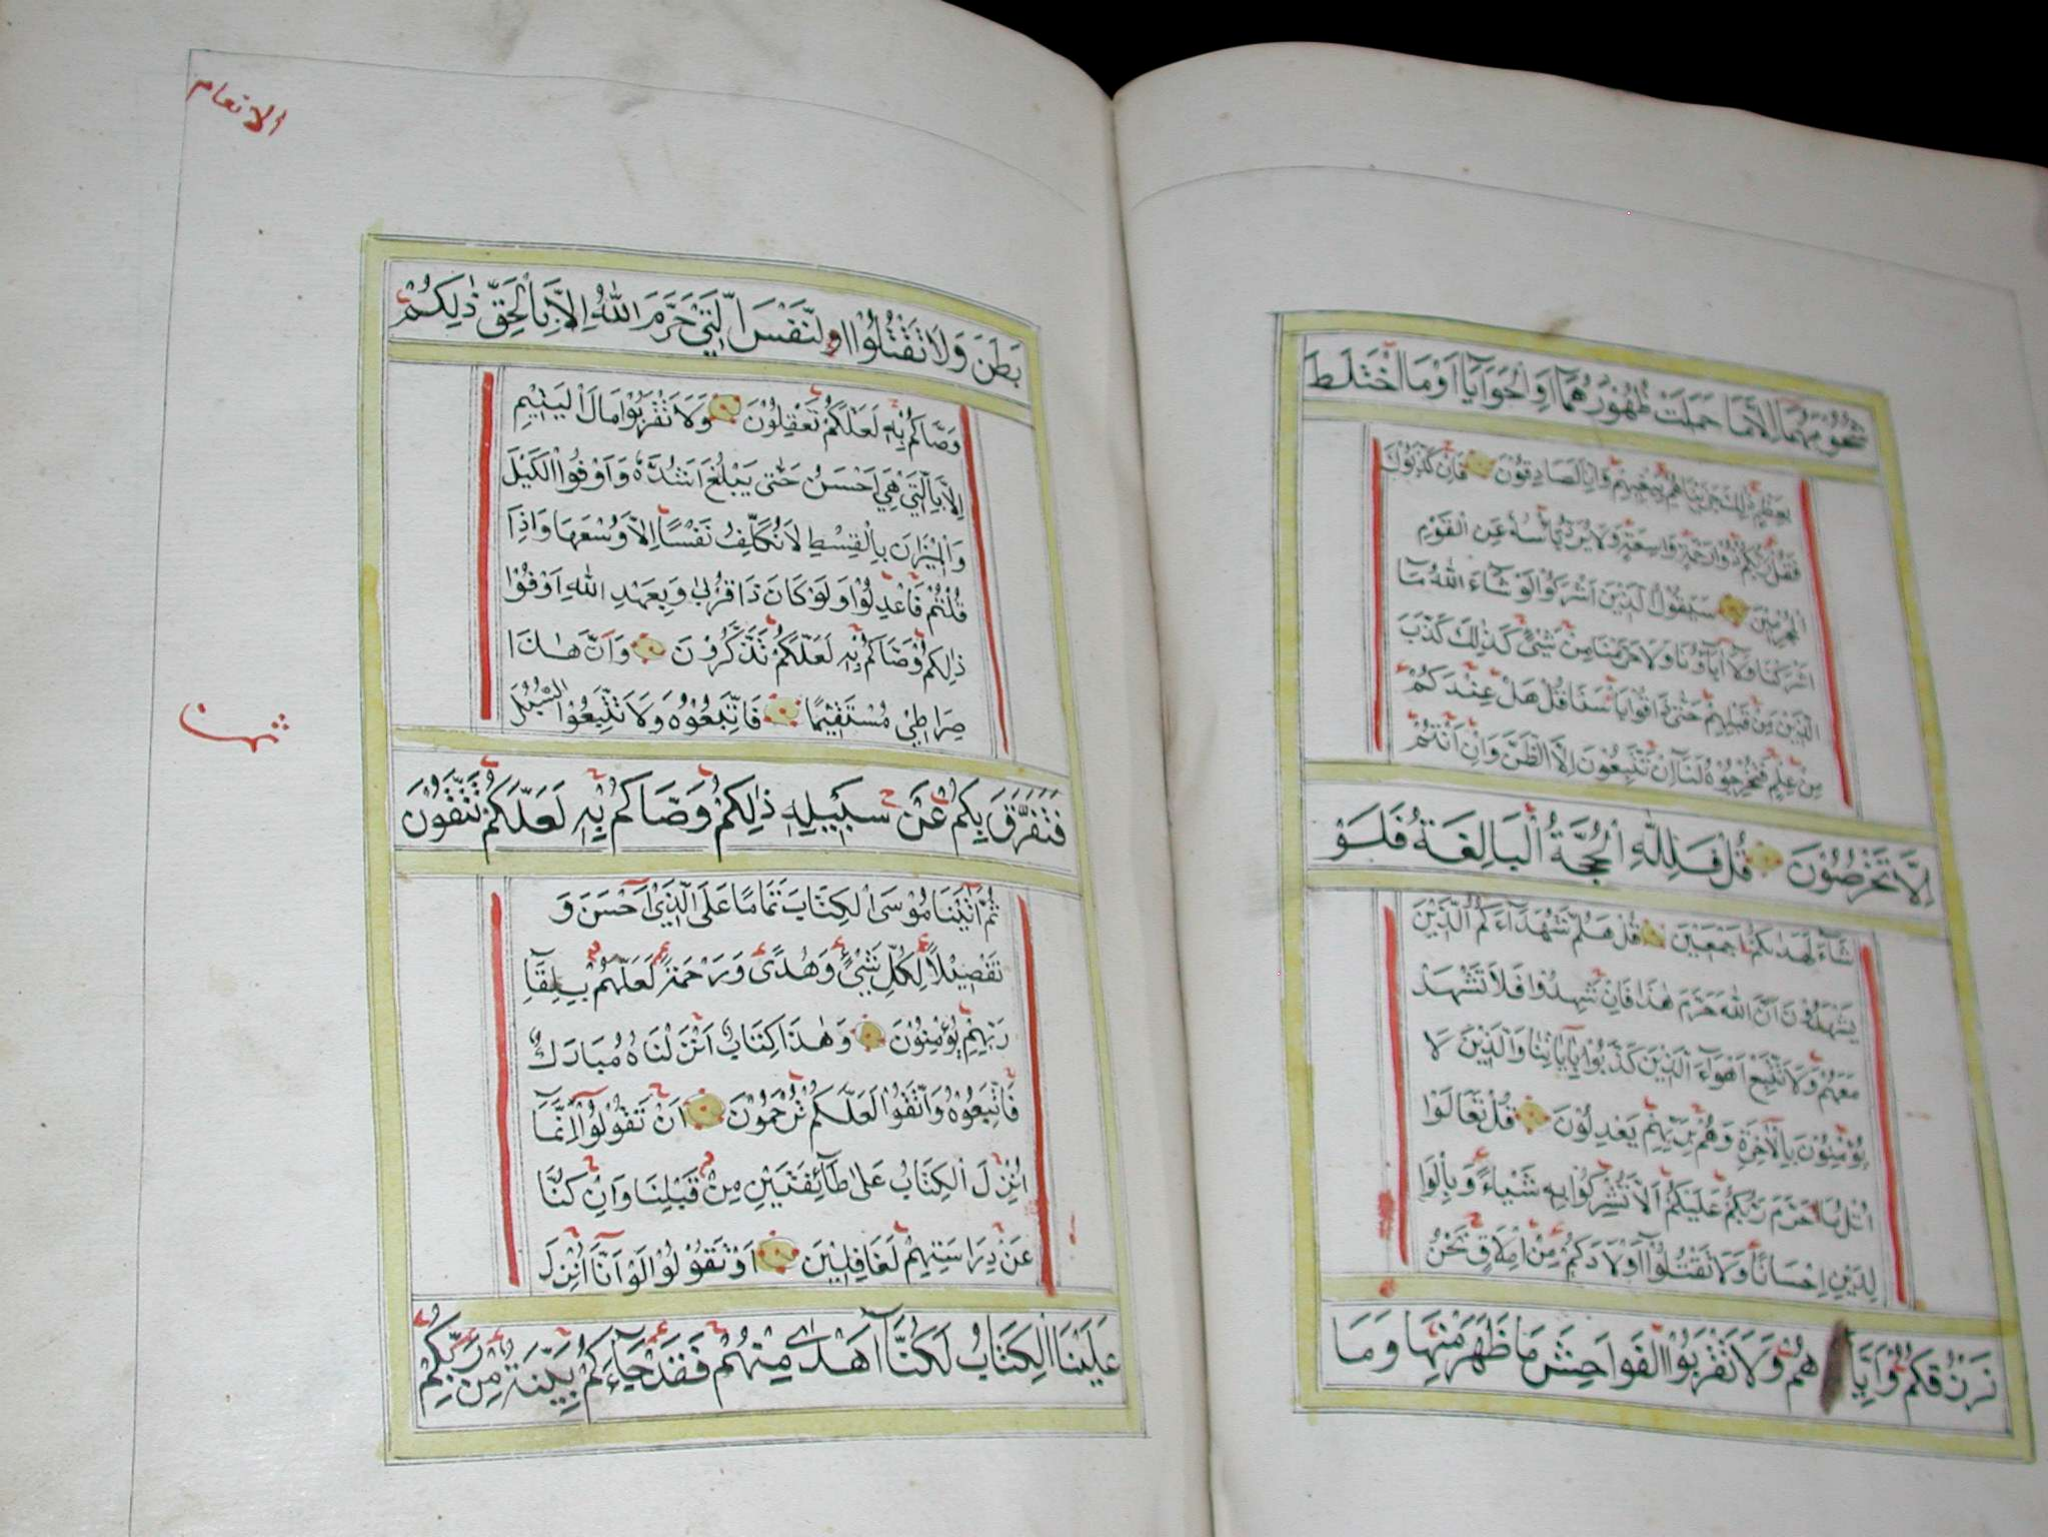 شُحُومَهُمَا اِلَّا مَا حَمَلَتْ ظُهُورُهُمَا اَوِ الْحَوَايَا اَوْ مَا اخْتَلَطَ
بِعَظْمٍ ذٰلِكَ جَزَيْنَاهُمْ بِبَغْيِهِمْ وَاِنَّا لَصَادِقُونَ فَاِنْ كَذَّبُوكَ
فَقُلْ رَبُّكُمْ ذُوا رَحْمَةٍ وَاسِعَةٍ وَلَا يُرَدُّ بَأْسُهُ عَنِ الْقَوْمِ
الْمُجْرِمِينَ سَيَقُولُ الَّذِينَ اَشْرَكُوا لَوْ شَاءَ اللّٰهُ مَا
اَشْرَكْنَا وَلَا اٰبَاؤُنَا وَلَا حَرَّمْنَا مِنْ شَيْئٍ كَذٰلِكَ كَذَّبَ
الَّذِينَ مِنْ قَبْلِهِمْ حَتّٰى ذَاقُوا بَأْسَنَا قُلْ هَلْ عِنْدَكُمْ
مِنْ عِلْمٍ فَتُخْرِجُوهُ لَنَا اِنْ تَتَّبِعُونَ اِلَّا الظَّنَّ وَاِنْ اَنْتُمْ
اِلَّا تَخْرُصُونَ قُلْ فَلِلّٰهِ الْحُجَّةُ الْبَالِغَةُ فَلَوْ
شَاءَ لَهَدٰيكُمْ اَجْمَعِينَ قُلْ هَلُمَّ شُهَدَاءَكُمُ الَّذِينَ
يَشْهَدُونَ اَنَّ اللّٰهَ حَرَّمَ هٰذَا فَاِنْ شَهِدُوا فَلَا تَشْهَدْ
مَعَهُمْ وَلَا تَتَّبِعْ اَهْوَاءَ الَّذِينَ كَذَّبُوا بِاٰيَاتِنَا وَالَّذِينَ لَا
يُؤْمِنُونَ بِالْاٰخِرَةِ وَهُمْ بِرَبِّهِمْ يَعْدِلُونَ قُلْ تَعَالَوْا
اَتْلُ مَا حَرَّمَ رَبُّكُمْ عَلَيْكُمْ اَلَّا تُشْرِكُوا بِهِ شَيْـاءً وَبِالْوَا
لِدَيْنِ اِحْسَانًا وَلَا تَقْتُلُوا اَوْلَادَكُمْ مِنْ اِمْلَاقٍ نَحْنُ
نَرْزُقُكُمْ وَاِيَّاهُمْ وَلَا تَقْرَبُوا الْفَوَاحِشَ مَا ظَهَرَ مِنْهَا وَمَا
الانعام
بَطَنَ وَلَا تَقْتُلُوا النَّفْسَ الَّتِي حَرَّمَ اللّٰهُ اِلَّا بِالْحَقِّ ذٰلِكُمْ
وَصَّاكُمْ بِهِ لَعَلَّكُمْ تَعْقِلُونَ وَلَا تَقْرَبُوا مَالَ الْيَتِيمِ
اِلَّا بِالَّتِي هِيَ اَحْسَنُ حَتّٰى يَبْلُغَ اَشُدَّهُ وَاَوْفُوا الْكَيْلَ
وَالْمِيزَانَ بِالْقِسْطِ لَا نُكَلِّفُ نَفْسًا اِلَّا وُسْعَهَا وَاِذَا
قُلْتُمْ فَاعْدِلُوا وَلَوْ كَانَ ذَا قُرْبٰى وَبِعَهْدِ اللّٰهِ اَوْفُوا
ذٰلِكُمْ وَصَّاكُمْ بِهِ لَعَلَّكُمْ تَذَكَّرُونَ وَاَنَّ هٰذَا
صِرَاطِي مُسْتَقِيمًا فَاتَّبِعُوهُ وَلَا تَتَّبِعُوا السُّبُلَ
فَتَفَرَّقَ بِكُمْ عَنْ سَبِيلِهِ ذٰلِكُمْ وَصَّاكُمْ بِهِ لَعَلَّكُمْ تَتَّقُونَ
ثُمَّ اٰتَيْنَا مُوسَى الْكِتَابَ تَمَامًا عَلَى الَّذِي اَحْسَنَ وَ
تَفْصِيلًا لِكُلِّ شَيْئٍ وَهُدًى وَرَحْمَةً لَعَلَّهُمْ بِلِقَاِ
رَبِّهِمْ يُؤْمِنُونَ وَهٰذَا كِتَابٌ اَنْزَلْنَاهُ مُبَارَكٌ
فَاتَّبِعُوهُ وَاتَّقُوا لَعَلَّكُمْ تُرْحَمُونَ اَنْ تَقُولُوا اِنَّمَا
اُنْزِلَ الْكِتَابُ عَلٰى طَائِفَتَيْنِ مِنْ قَبْلِنَا وَاِنْ كُنَّا
عَنْ دِرَاسَتِهِمْ لَغَافِلِينَ اَوْ تَقُولُوا لَوْ اَنَّا اُنْزِلَ
عَلَيْنَا الْكِتَابُ لَكُنَّا اَهْدٰى مِنْهُمْ فَقَدْ جَاءَكُمْ بَيِّنَةٌ مِنْ رَبِّكُمْ